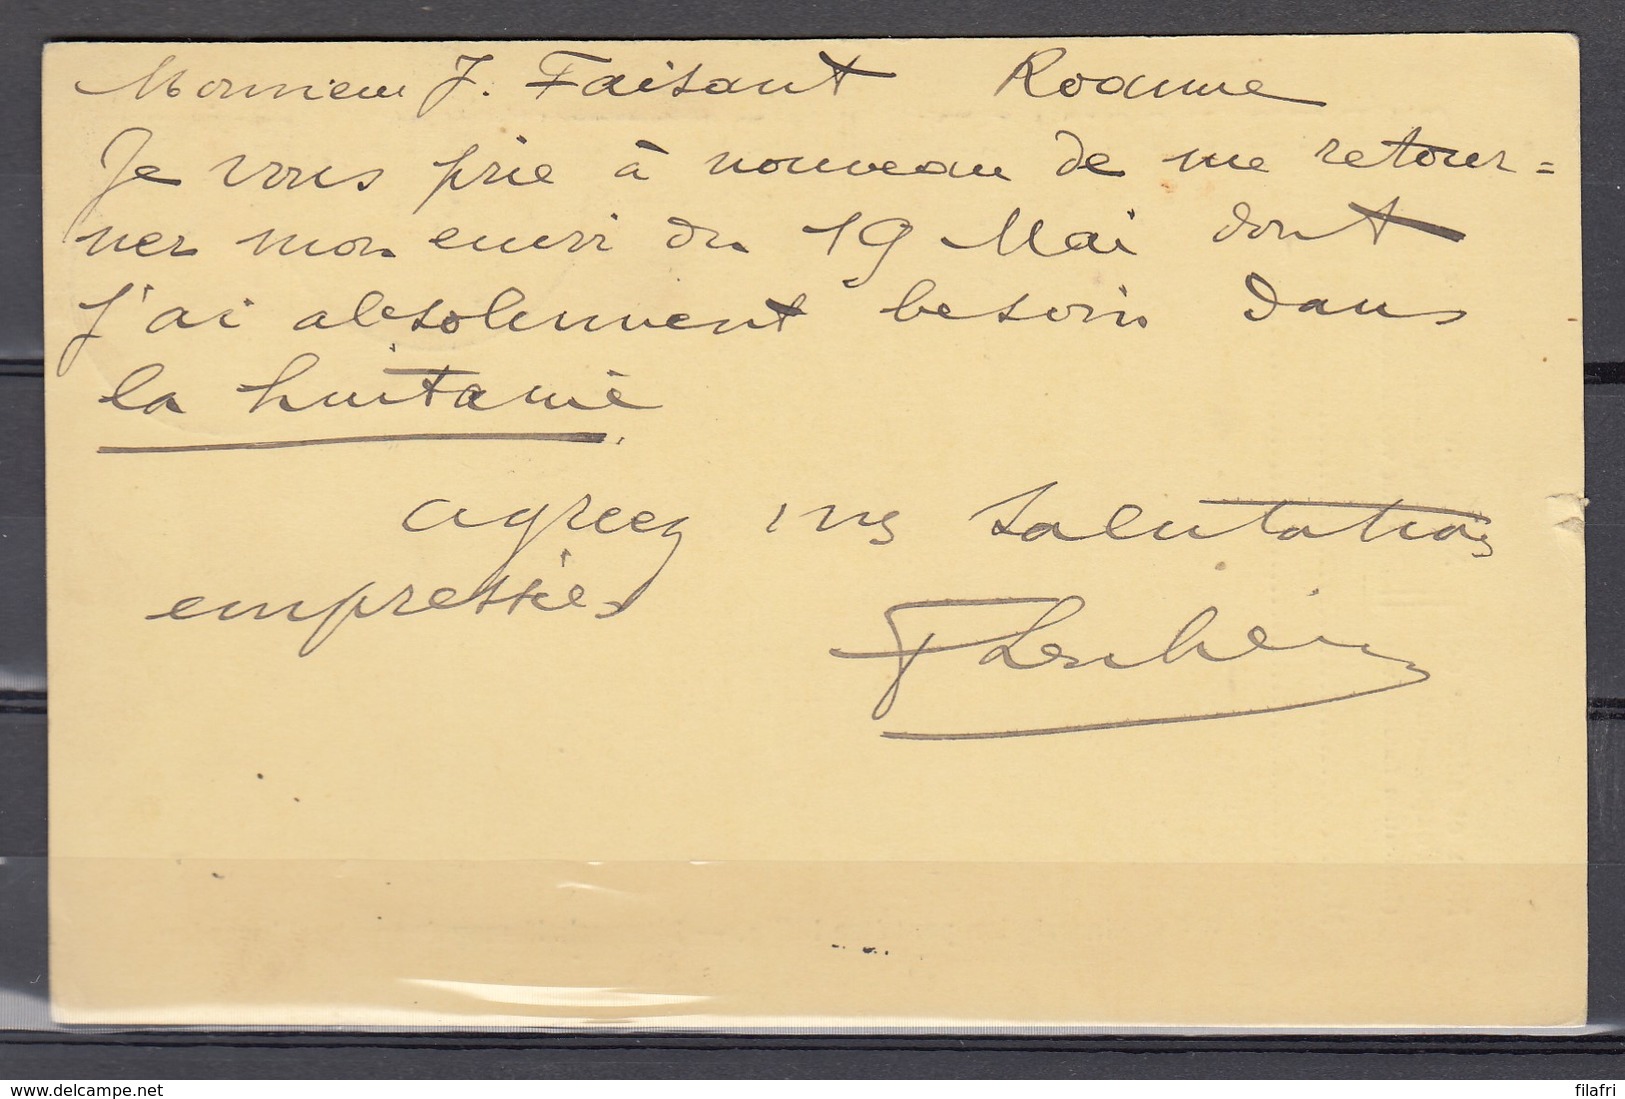 Monsieur J. Faisant Roanne
Je vous prie à nouveau de me retour=
ner mon envoi du 19 Mai dont
J'ai absolument besoin dans
la huitaine
agreez mes salutations
empressées
www.delcampe.net
filafri